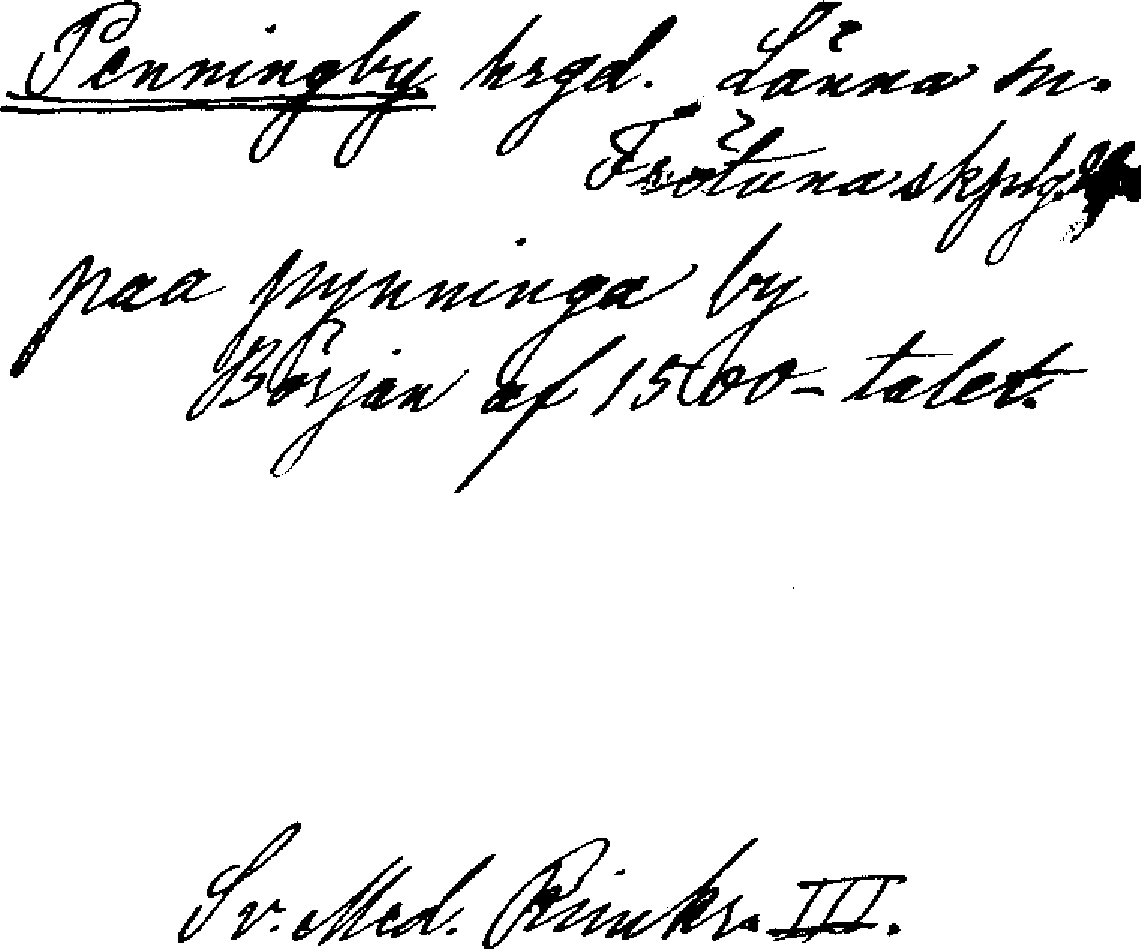 Penningby hrgd. Länna sn.
Frötuna skplg.
paa pynninga by
Början af 1500-talet.
Sv. Med. Rimkr. III.